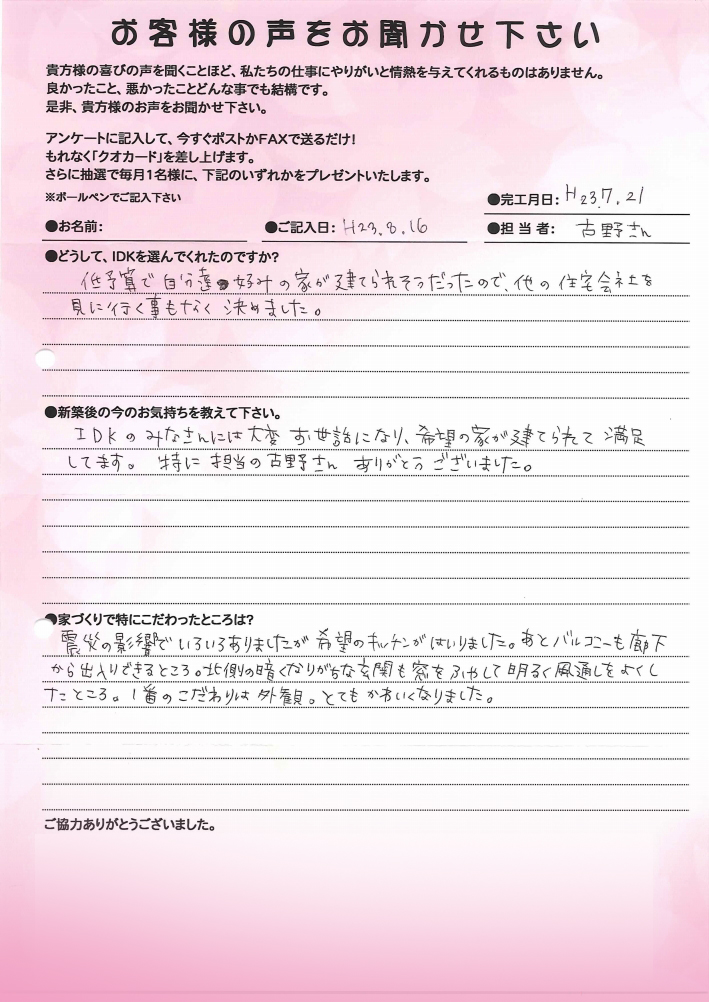 お客様の声をお聞かせ下さい
貴方様の喜びの声を聞くことほど、私たちの仕事にやりがいと情熱を与えてくれるものはありません。
良かったこと、悪かったことどんな事でも結構です。
是非、貴方様のお声をお聞かせ下さい。
アンケートに記入して、今すぐポストかFAXで送るだけ!
もれなく「クオカード」を差し上げます。
さらに抽選で毎月1名様に、下記のいずれかをプレゼントいたします。
※ボールペンでご記入下さい
●完工月日: H23.7.21
●お名前: ●ご記入日: H23.8.16 ●担当者:古野さん
●どうして、IDKを選んでくれたのですか?
低予算で自分達好みの家が建てられそうだったので、他の住宅会社を
見に行く事もなく決めました。
●新築後の今のお気持ちを教えて下さい。
IDKのみなさんには大変お世話になり、希望の家が建てられて満足
してます。特に担当の古野さんありがとうございました。
●家づくりで特にこだわったところは?
震災の影響でいろいろありましたが希望のキッチンがはいりました。あとバルコニーも廊下
から出入りできるところ。北側の暗くなりがちな玄関も窓をふやして明るく風通しをよくし
たところ。1番のこだわりは外観。とてもかわいくなりました。
ご協力ありがとうございました。